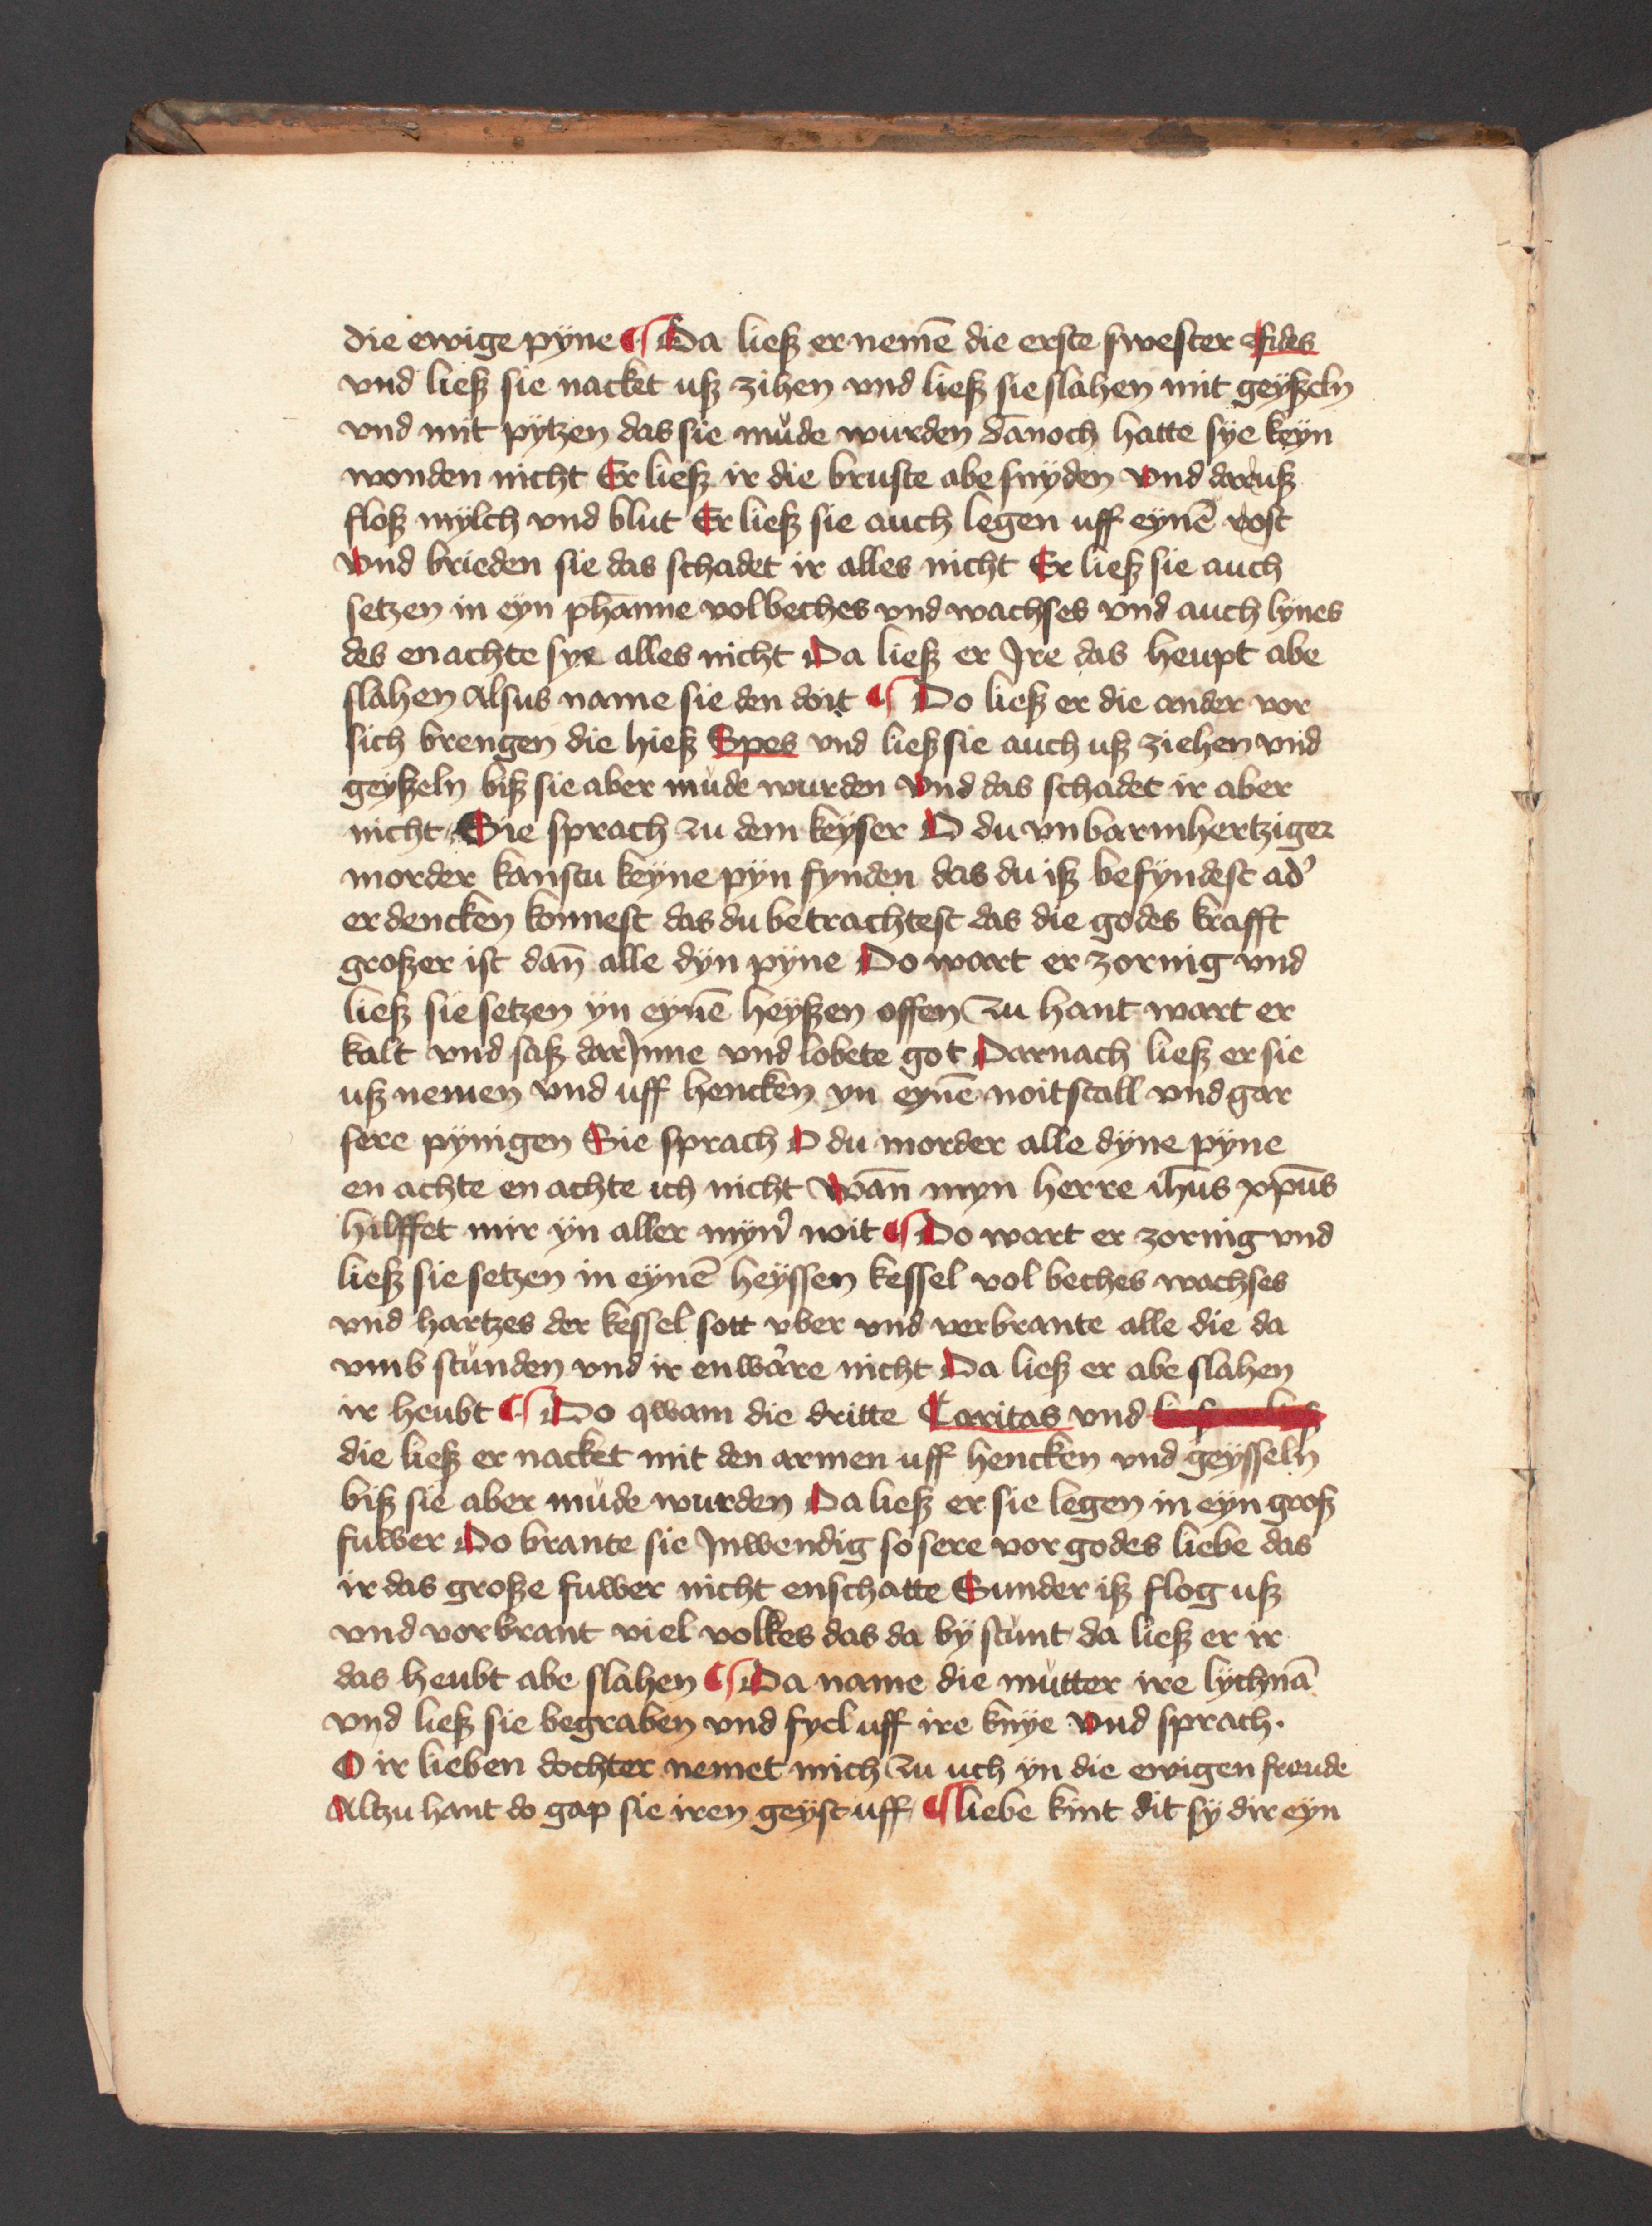 die ewige pyne ¶ Da ließ er nemē die erste swester Fides
vnd ließ sie nacket uß zihen vnd ließ sie slahen mit geyßeln
vnd mit pytzen das sie müde wurden dānoch hatte sye keyn
wonden nicht Er ließ ir die bruste abe snyden vnd daruß
floß mylch vnd blut Er ließ sie auch legen uff eynē rost
vnd brieden sie das schadet ir alles nicht Er ließ sie auch
setzen in eyn phanne vol beches vnd wachses vnd auch lynes
des en achte sye alles nicht Da ließ er Jre das heupt abe
slahen Alsus name sie den doit ¶ Do ließ er die ander vor
sich brengen die hieß Spes vnd ließ sie auch uß ziehen vnd
geyßeln biß sie aber müde wurden vnd das schadet ir aber
nicht Sie sprach zu dem keyser O du vnbarmhertziger
morder kanstu keyne pyn fynden das du iß befyndest ad'
erdencken konnest das du betrachtest das die godes krafft
großer ist dan̄ alle dyn pyne Do wart er zornig vnd
ließ sie setzen yn eynē heyßen offen zu hant wart er
kalt vnd saß darJnne vnd lobete got Darnach ließ er sie
uß nemen vnd uff hencken yn eynē noitstall vnd gar
sere pynigen Sie sprach O du morder alle dyne pyne
en achte en achte ich nicht wan̄ myn herre ih̄us xp̄us
hilffet mir yn aller myn' noit ¶ Do wart er zornig vnd
ließ sie setzen in eynē heyssen kessel vol beches wachses
vnd hartzes der kessel sott vber vnd verbrante alle die da
vmb stunden vnd ir enware nicht Da ließ er abe slahen
ir heubt ¶ Do qwam die dritte Caritas vnd
die ließ er nacket mit den armen uff hencken vnd geysseln
biß sie aber müde wurden Da ließ er sie legen in eyn groß
fuwer Do brante sie Jnwendig so sere vor godes liebe das
ir das große fuwer nicht enschatte Sunder iß flog uß
vnd vorbrant viel volkes das da by stunt da ließ er ir
das heubt abe slahen ¶ Da name die mutter ire lychnā
vnd ließ sie begraben vnd fyel uff ire knye vnd sprach.
O ir lieben dochter nemet mich zu uch yn die ewigen freude
Altzu hant do gap sie iren geyst uff ¶ liebe kint dit sy dir eyn